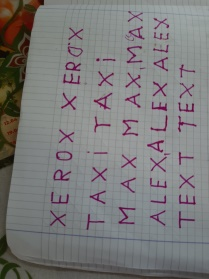 XEROX XEROX
TAXI TAXi
MAX MAX,MAX
ALEX,ALEX ALEX
TEXT TEXT